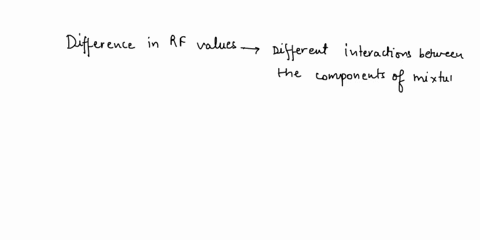 Difference in RF values → Different interactions between
the components of mixtu